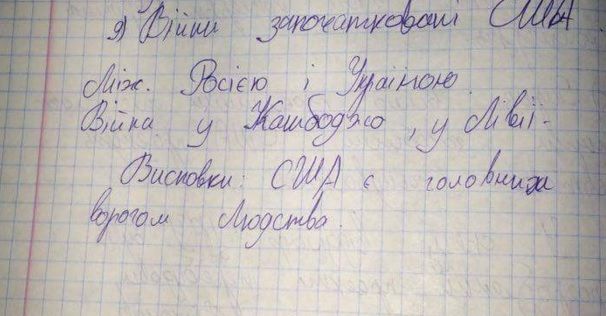 9) Війни започатковані США
Між. Росією і Україною
Війна у Камбоджо, у Лівії.
Висновки: США є головним
ворогом Людства.